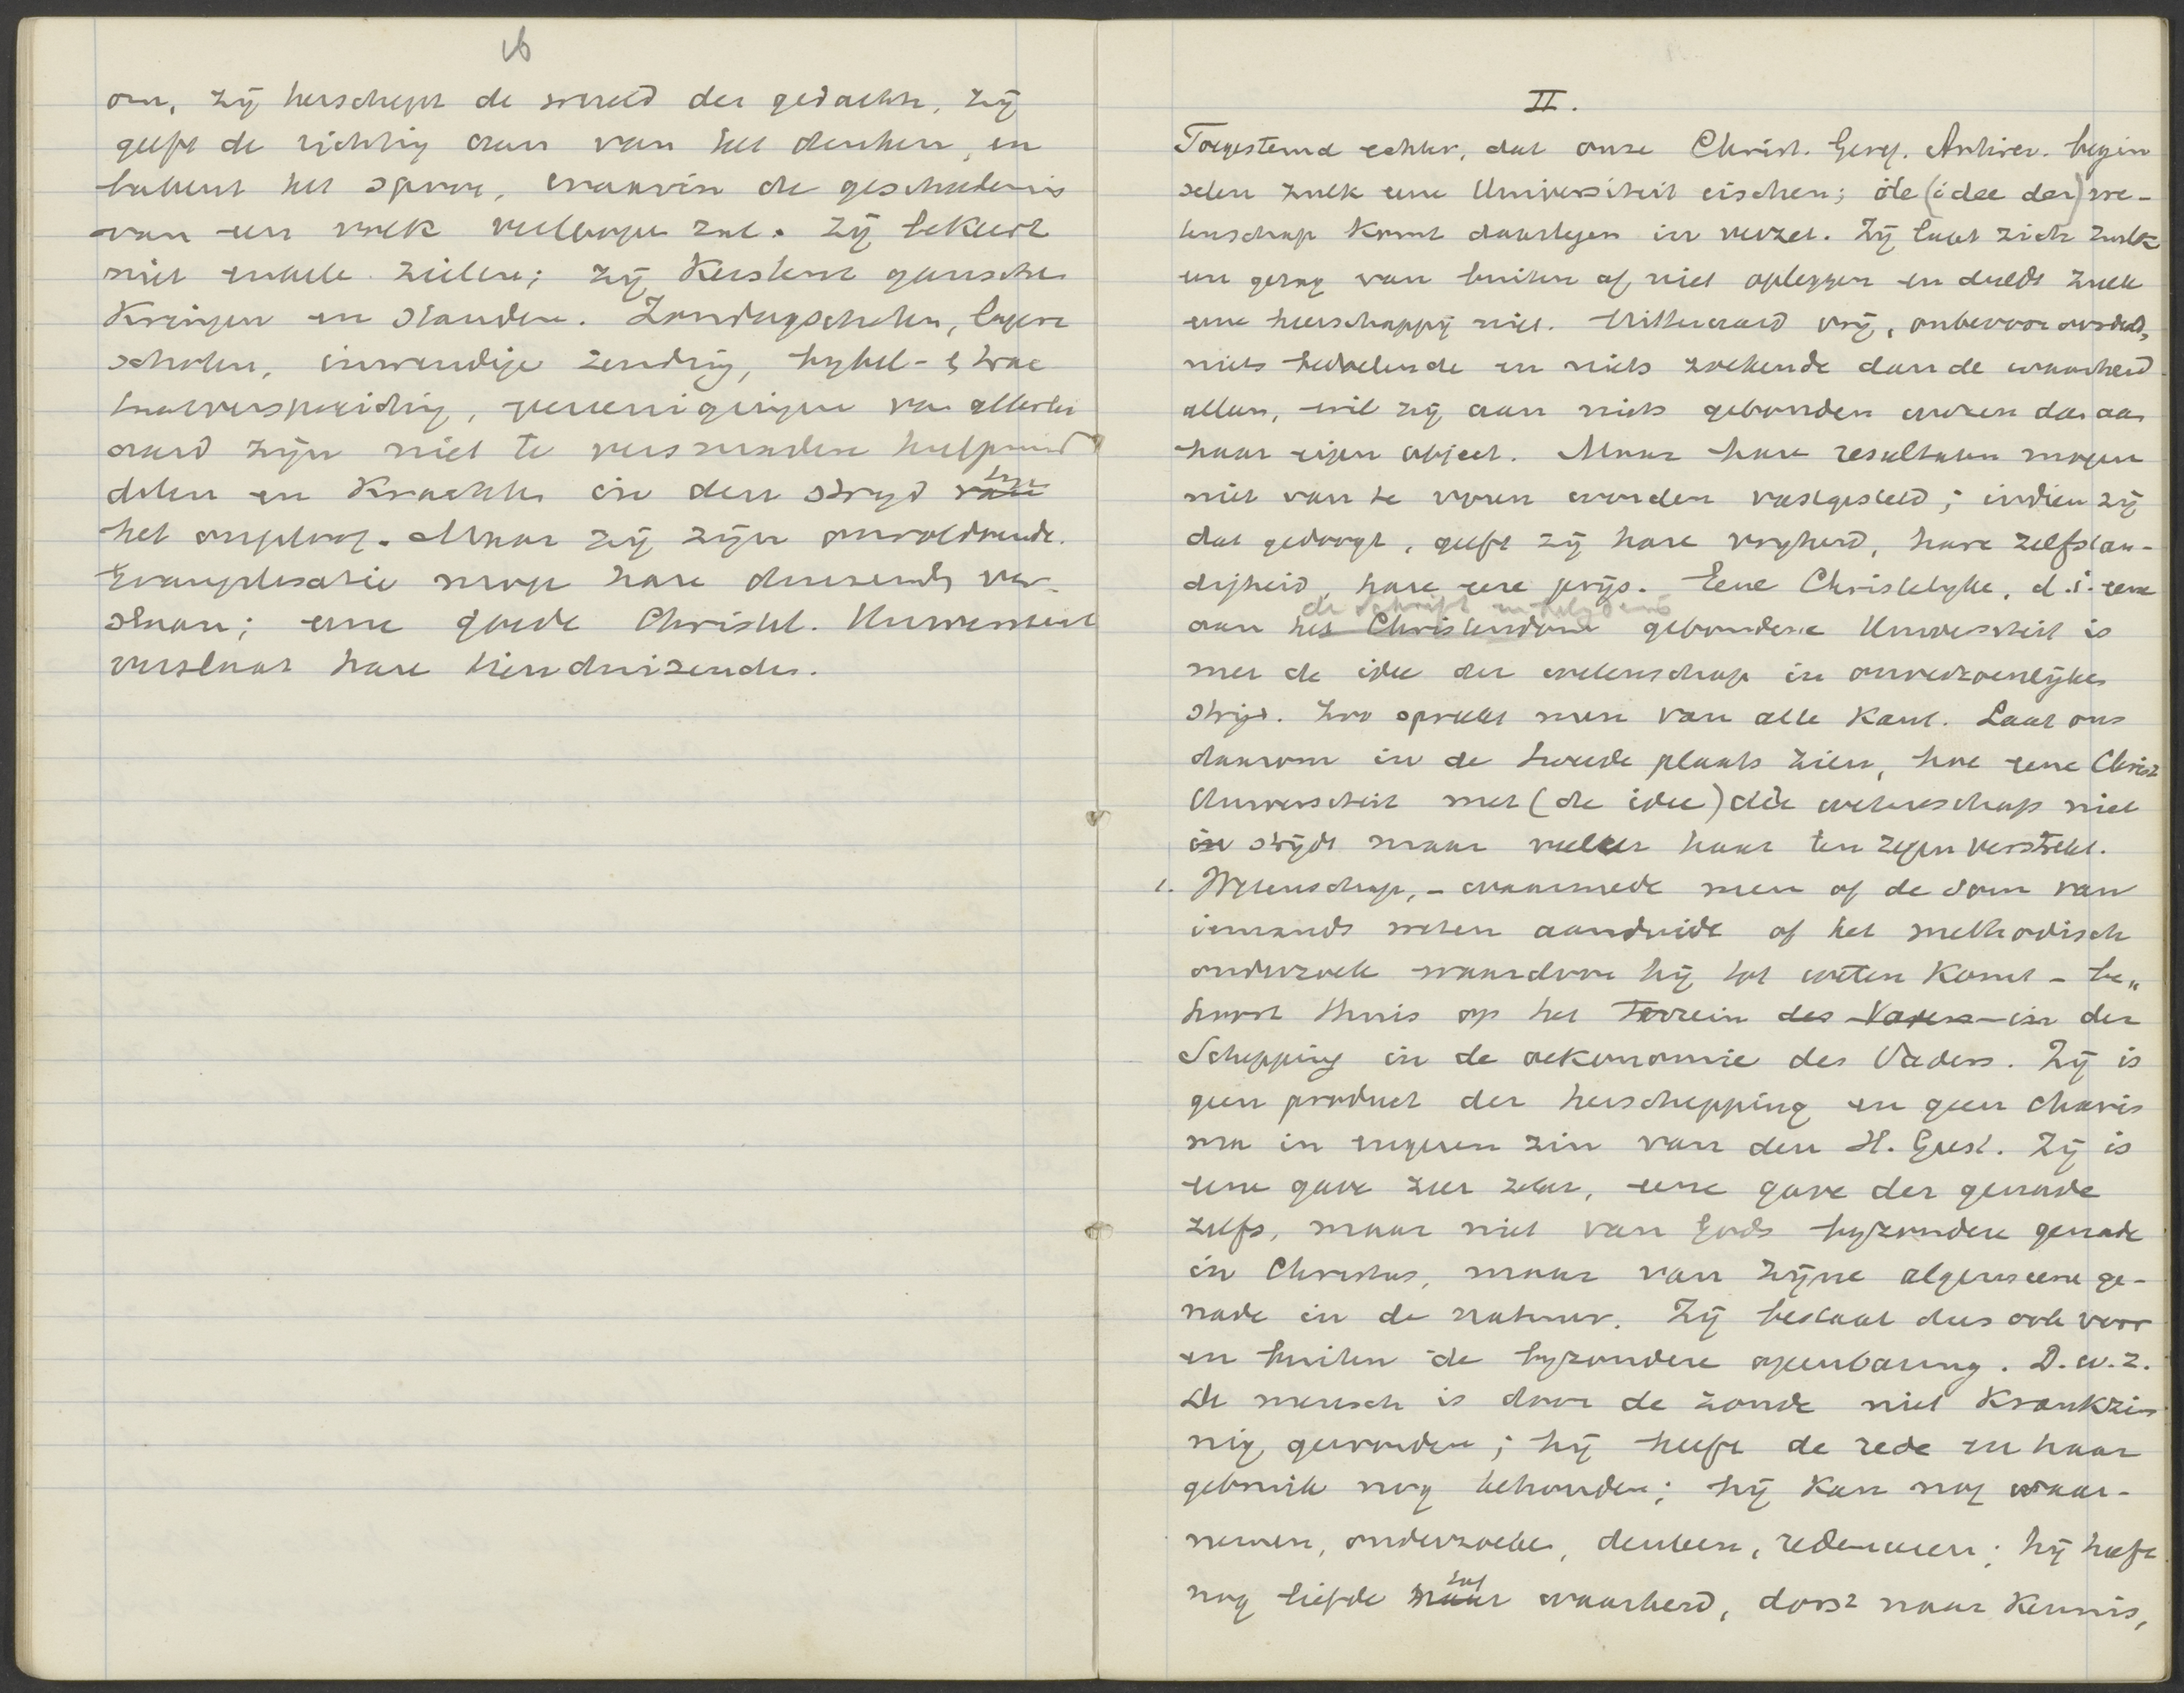 16
om, zij herschept de wereld der gedachte, zij
geeft de richting aan van het denken, en
bakent het spoor, waarin de geschiedenis
van een volk verloopen zal. Zij bekeert
niet enkele zielen; zij kerstent gansche
kringen en standen. Zondagscholen, lagere
scholen, inwendige zending, bybel- & trac
taatverspreiding, vereenigingen van allerlei
aard zijn niet te versmaden hulpmid
delen en krachten in den stryd tegen
het ongeloof. Maar zij zijn onvoldoende.
Evangelisatie moge hare duizenden ver-
slaan; eene goede Christel. Universiteit
verslaat hare tienduizenden.
II.
Toegestemd echter, dat onze Christ. Geref. Antirev. begin
selen zulk eene Universiteit eischen; de (idee der) we-
tenschap komt daartegen in verzet. Zij laat zich zulk
een gezag van buiten af niet opleggen en duldt zulk
eene heerschappij niet. Uitteraard vrij, onbevooroordeeld,
niets bedoelende en niets zoekende dan de waarheid
alleen, wil zij aan niets gebonden wezen dan aan
haar eigen object. Maar hare resultaten mogen
niet van te voren worden vastgesteld; indien zij
dat gedoogt, geeft zij hare vryheid, hare zelfstan-
digheid, hare eere prijs. Eene Christelyke, d.i. eene
de Schrift en belydenis
aan het Christendom gebondene Universiteit is
met de idee der wetenschap in onverzoenlijken
strijd. Zoo spreekt men van alle kant. Laat ons
daarom in de tweede plaats zien, hoe eene Christ
Universiteit met (de idee) der wetenschap niet
in strijdt maar veeleer haar ten zegen verstrekt.
1. Wetenschap, - waarmede men of de som van
iemands weten aanduidt of het methodisch
onderzoek waardoor hij tot weten komt - be„
hoort thuis op het Terrein des Vaders in der
Schepping in de oekonomie des Vaders. Zij is
geen product der herschepping en geen charis
ma in engeren zin van den H. Geest. Zij is
eene gave zeer zeker, eene gave der genade
zelfs, maar niet van Gods byzondere genade
in Christus, maar van zijne algemeene ge-
nade in de natuur. Zij bestaat dus ook voor
en buiten de byzondere openbaring. D.w.z.
de mensch is door de zonde niet krankzin
nig geworden; hij heeft de rede en haar
gebruik nog behouden; hij kan nog waar-
nemen, onderzoeken, denken, redeneeren; hij heeft
nog liefde tot waarheid, dorst naar kennis,